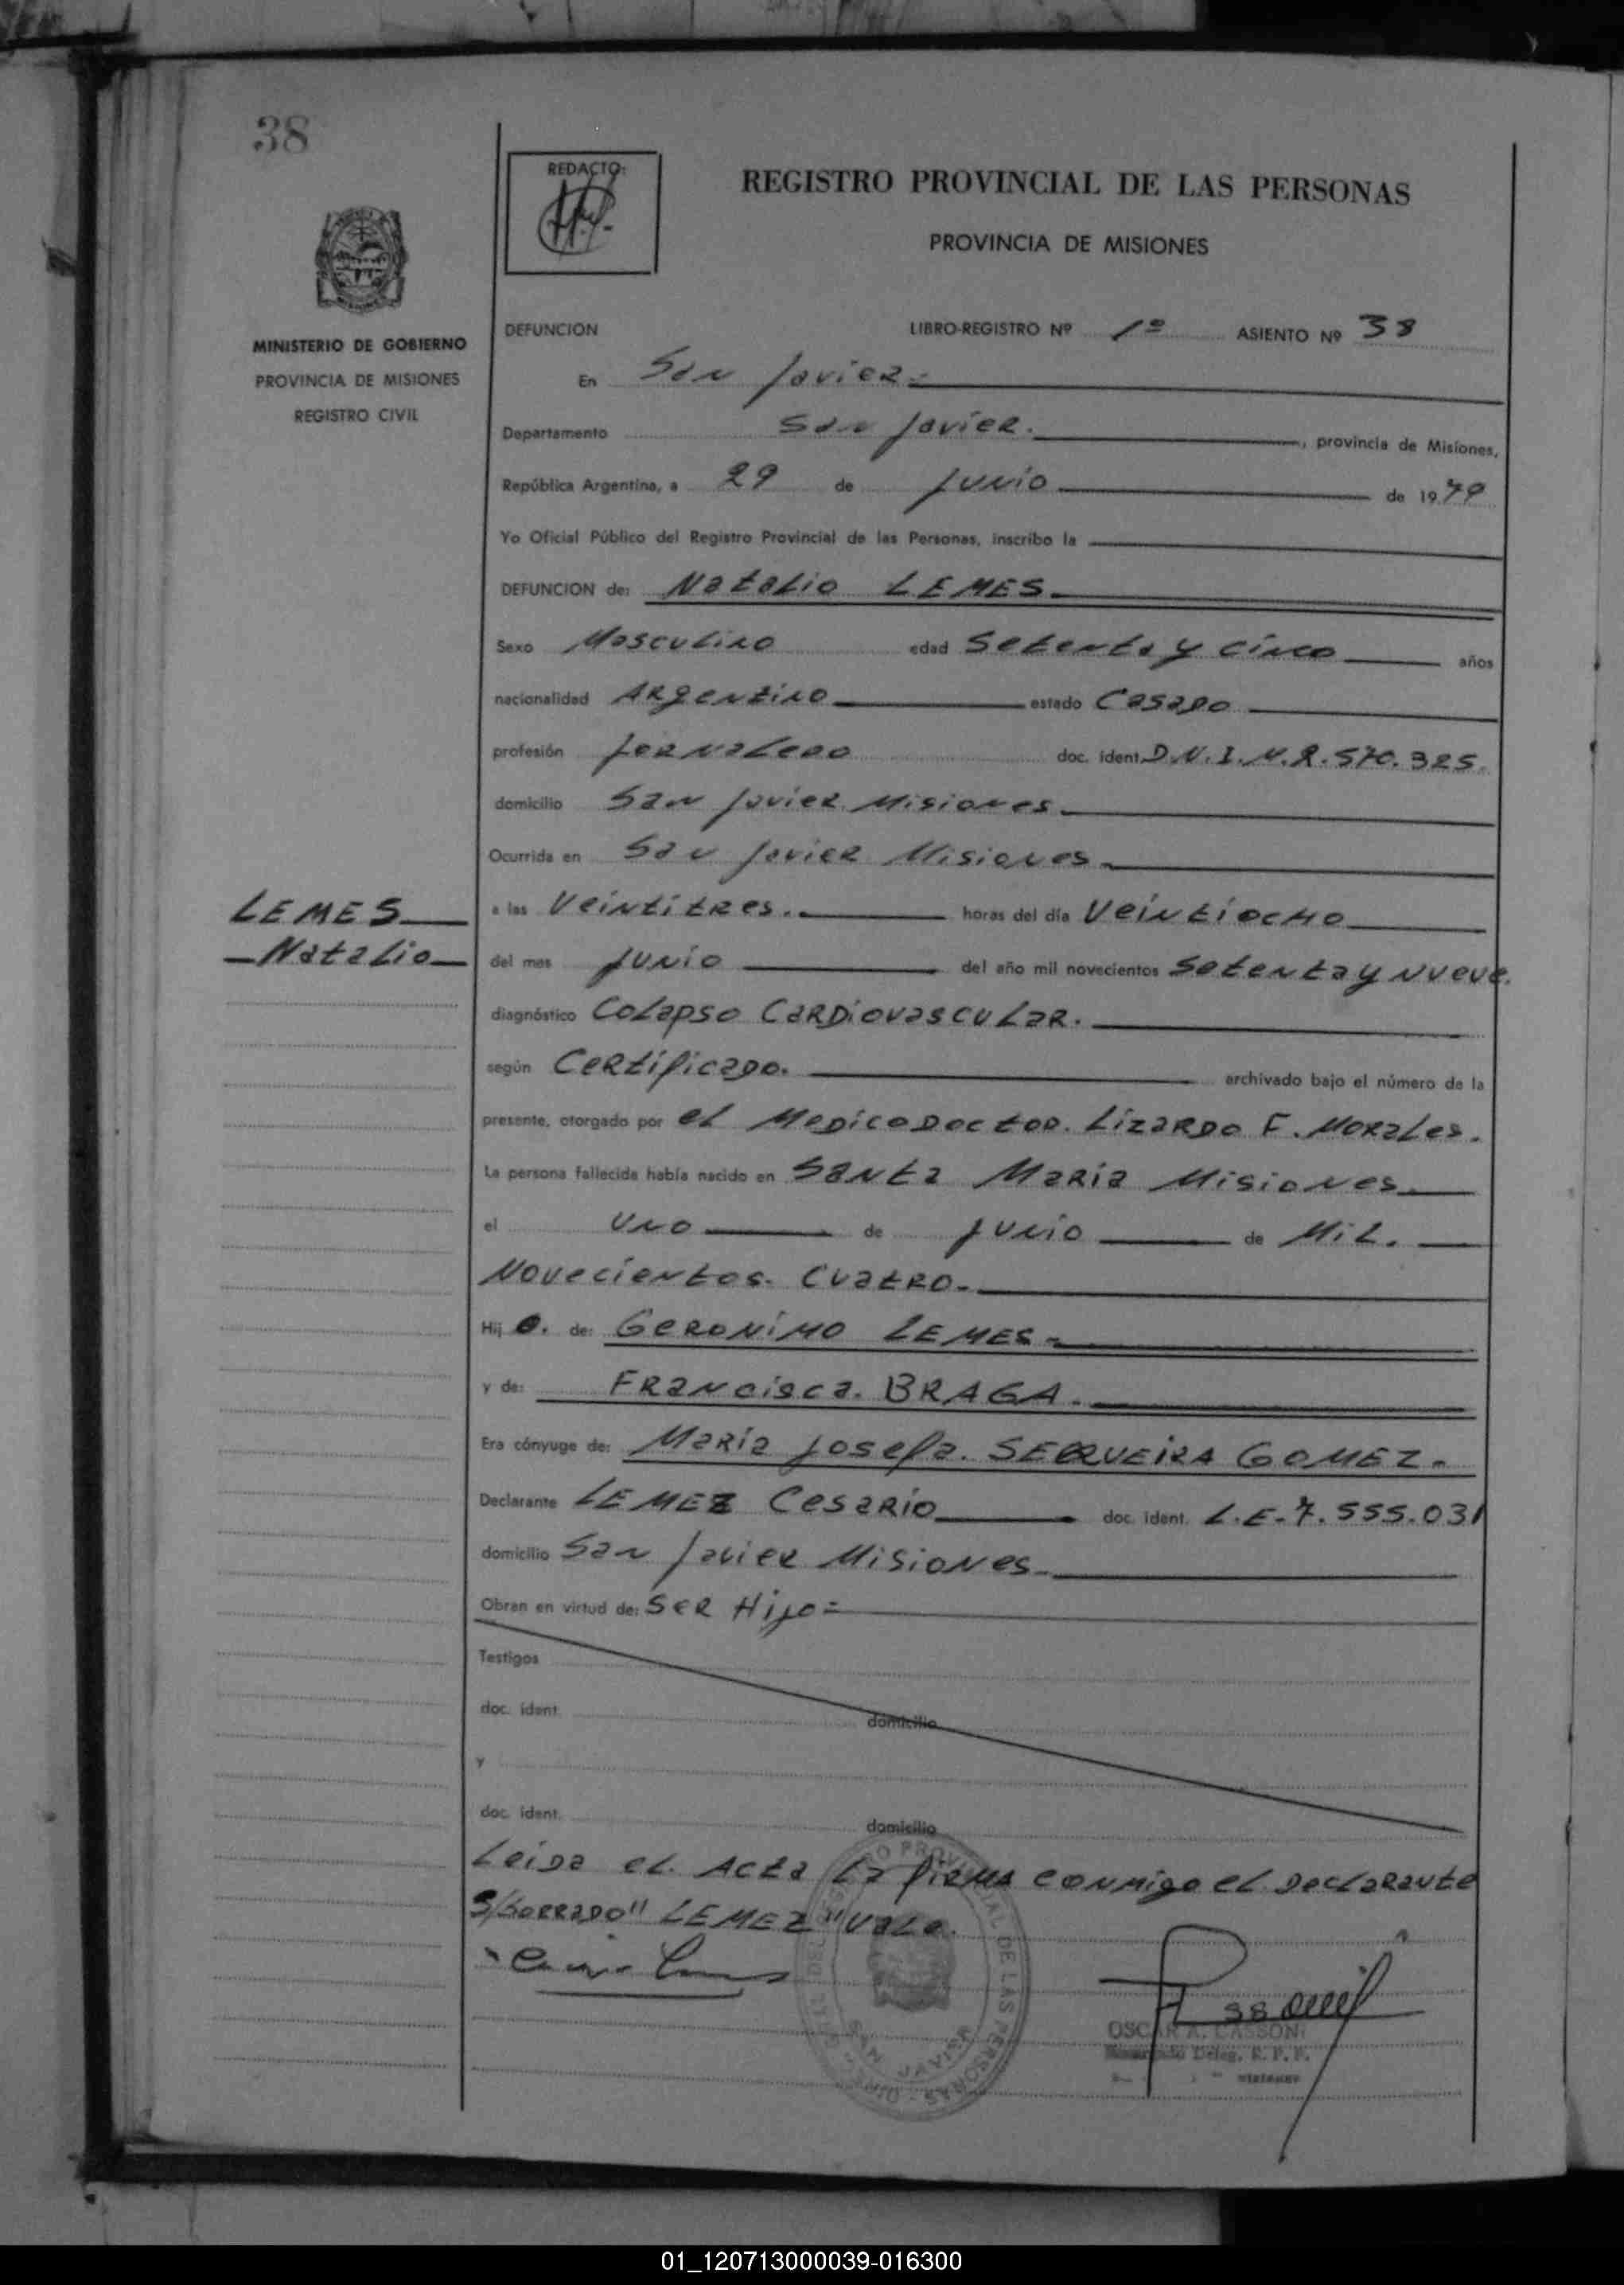 38
REDACTO:
REGISTRO PROVINCIAL DE LAS PERSONAS
PROVINCIA DE MISIONES
MINISTERIO DE GOBIERNO
PROVINCIA DE MISIONES
REGISTRO CIVIL
DEFUNCION LIBRO-REGISTRO Nº 1º ASIENTO Nº 38
En San Javier=
Departamento San Javier. , provincia de Misiones,
República Argentina, a 29 de Junio de 1979
Yo Oficial Público del Registro Provincial de las Personas, inscribo la
DEFUNCION de: Natalio LEMES
Sexo Masculino edad Setenta y cinco años
nacionalidad Argentino estado Casado
profesión Jornalero doc. ident. D.N.I.N.R. 570.325.
domicilio San Javier Misiones
Ocurrida en San Javier Misiones
LEMES
Natalio
a las Veintitres. horas del día Veintiocho
del mes Junio del año mil novecientos Setenta y Nueve.
diagnóstico Colapso Cardiovascular.
según Certificado. archivado bajo el número de la
presente, otorgado por el Medico Doctor. Lizardo F. Morales.
La persona fallecida había nacido en Santa Maria Misiones
el uno de Junio de Mil.
Novecientos. Cuatro-
Hij o. de: Geronimo LEMES=
y de: Francisca. BRAGA.
Era cónyuge de: Maria Josefa. SEQUEIRA GOMEZ-
Declarante LEMEZ Cesario doc. ident. L.E-7.555.031
domicilio San Javier Misiones-
Obran en virtud de: Ser Hijo=
Testigos
doc. ident. domicilio
y
doc. ident. domicilio
Leida el. Acta la firma conmigo el Declarante
S/borrado" LEMEZ "Vale.
SAN JAVIER
OSCAR A. CASSONI
Deleg. R. P. P.
01_120713000039-016300